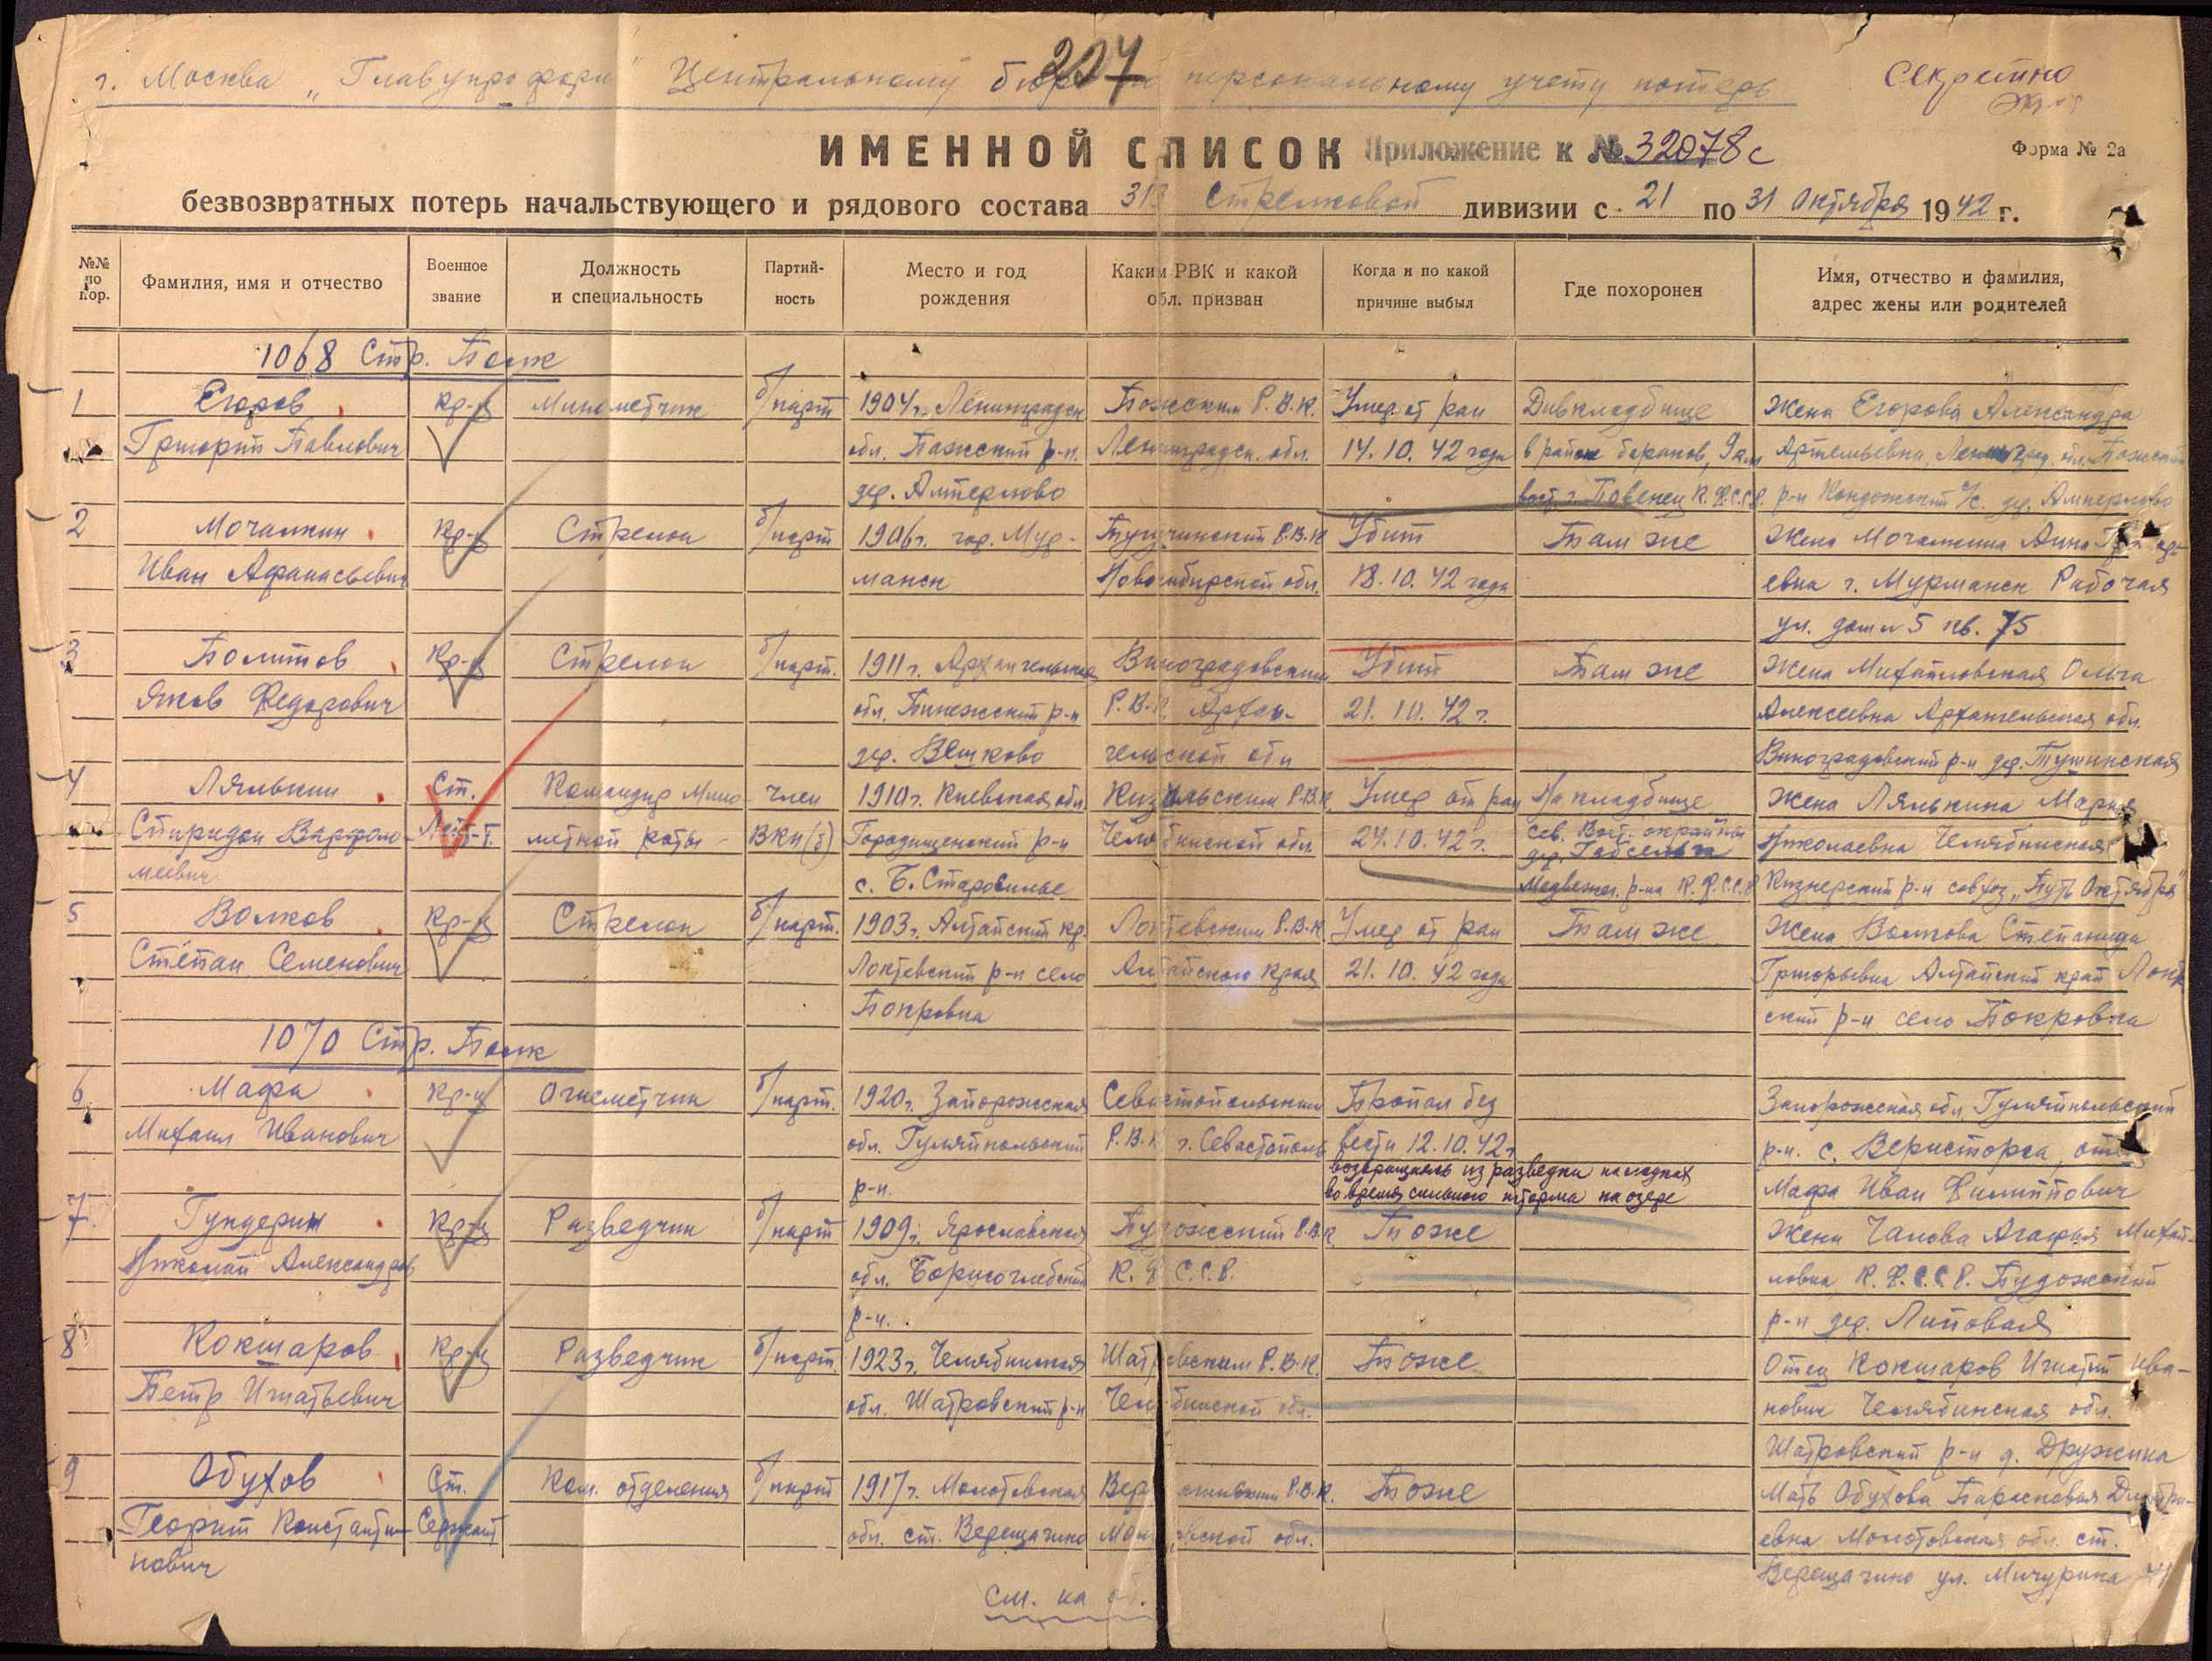 г. Москва „Главупрформ" Центральному бюро персональному учету потерь
207
Секретно
ИМЕННОЙ СПИСОК Приложение к № 32078с
Форма № 2а
безвозвратных потерь начальствующего и рядового состава 313 Стрелковой дивизии с 21 по 31 Октября 1942 г.
№№ по пор.
Фамилия, имя и отчество
Военное звание
Должность и специальность
Партийность
Место и год рождения
Каким РВК и какой обл. призван
Когда и по какой причине выбыл
Где похоронен
Имя, отчество и фамилия, адрес жены или родителей
1068 Стр. Полк
1 Егоров кр-ц Минометчик б/парт 1904г. Ленинградск Пожским Р.В.К. Умер от ран Дивкладбище Жена Егорова Александра
Григорий Павлович обл. Пажский р-н. Ленинградск. обл. 14.10.42 года в районе бараков, 9 км Артемьевна, Ленинград. обл.
дер. Алперлово вост. г. Повенец К.Ф.С.С.Р. р-н дер. Алперлово
2 Мочалкин кр-ц Стрелок б/парт 1906г. гор. Мур- Тугучинский Р.В.К Убит Там же Жена Мочалкина Анна
Иван Афанасьевич манск Новосибирской обл. 18.10.42 года евна г. Мурманск Рабочая
ул. дом 5 кв. 75
3 Политов кр-ц Стрелок б/парт. 1911г. Архангельская Виноградовским Убит Там же Жена Михайловская Ольга
Яков Федорович обл. Пинежский р-н Р.В.К. Архан- 21.10.42г. Алексеевна Архангельская обл.
дер. Вешково гельской обл Виноградовский р-н дер. Тушинская
4 Лялькин Ст. Командир Мино- член 1910г. Киевская обл. Кизильским Р.В.К. Умер от ран На кладбище Жена Лялькина Мария
Спиридон Варфоло- Лейт-т. метной роты ВКП(б) Городищенский р-н Челябинской обл. 24.10.42г. сев. Вост. окраины Николаевна Челябинская
дер. Габсельга
меевич с. Б. Староселье Медвежег. р-на К.Ф.С.С.Р р-н совхоз „Путь Октября"
5 Волков кр-ц Стрелок б/парт. 1903г. Алтайский кр. Локтевским Р.В.К Умер от ран Там же Жена Волкова Степанида
Степан Семенович Локтевский р-н село Алтайского края 21.10.42 года Григорьевна Алтайский край Локтев
Покровка ский р-н село Покровка
1070 Стр. Полк
6 Мафа кр-ц Огнеметчик б/парт. 1920г. Запорожская Севастопольским Пропал без Запорожская обл, Гуляйпольский
Михаил Иванович обл. Гуляйпольский Р.В.К г. Севастополь вести 12.10.42г р-н. с. отец
возвращаясь из разведки на лодках
р-н. во время сильного шторма на озере Мафа Иван Филиппович
7. Гундерин кр-ц Разведчик б/парт 1909г. Ярославская Пудожский Р.В.К. Тоже Жена Агафья Михай-
Николай Александров обл. Борисоглебский К.Ф.С.С.Р. ловна К.Ф.С.С.Р. Пудожский
р-н. р-н дер. Липовая
8 Кокшаров кр-ц Разведчик б/парт. 1923г. Челябинская Шатровским Р.В.К. Тоже Отец Кокшаров Игнатий Ива-
Петр Игнатьевич обл. Шатровский р-н Челябинской обл. нович Челябинская обл.
Шатровский р-н д. Дружина
9 Обухов Ст. Ком. отделения б/парт 1917г. Молотовская Р.В.К. Тоже Мать Обухова Парасковья Дмитри-
Георгий Константи- Сержант обл. ст. Верещагино обл. евна Молотовская обл. ст.
нович Верещагино ул. Мичурина
см. на об.